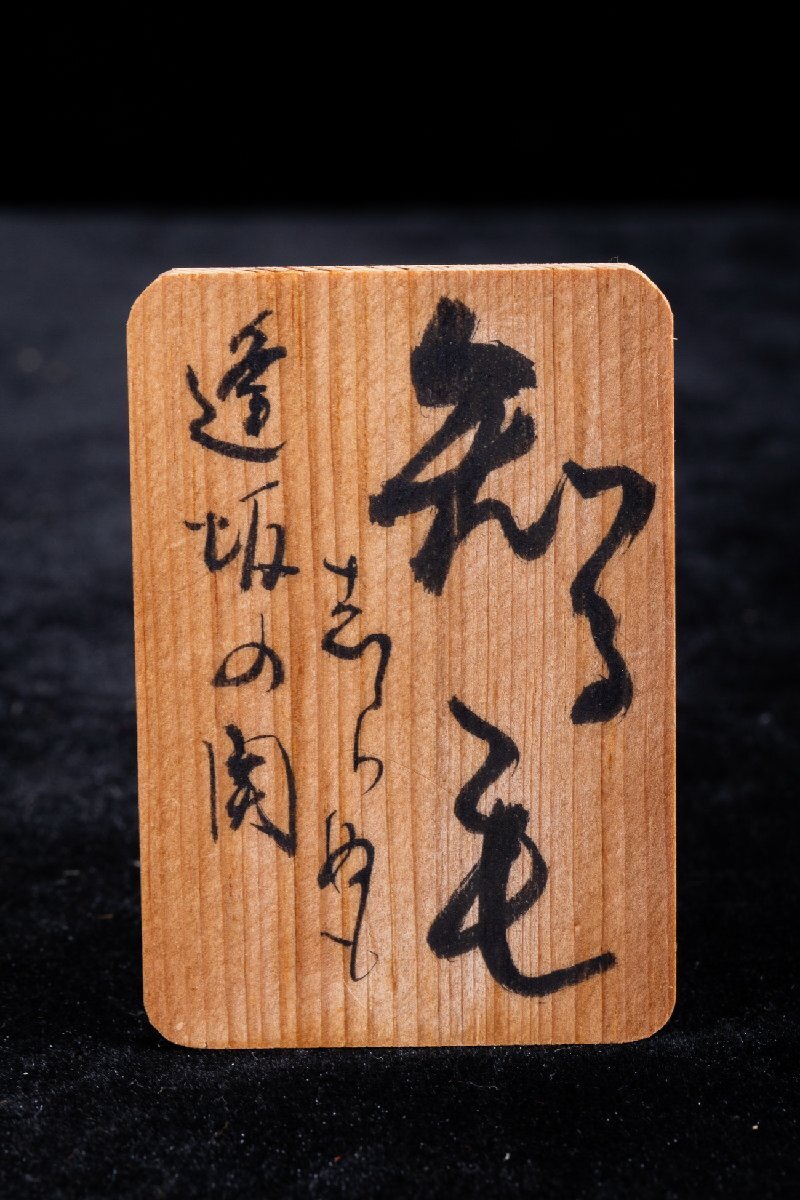 知る毛
志らぬも
逢坂の関